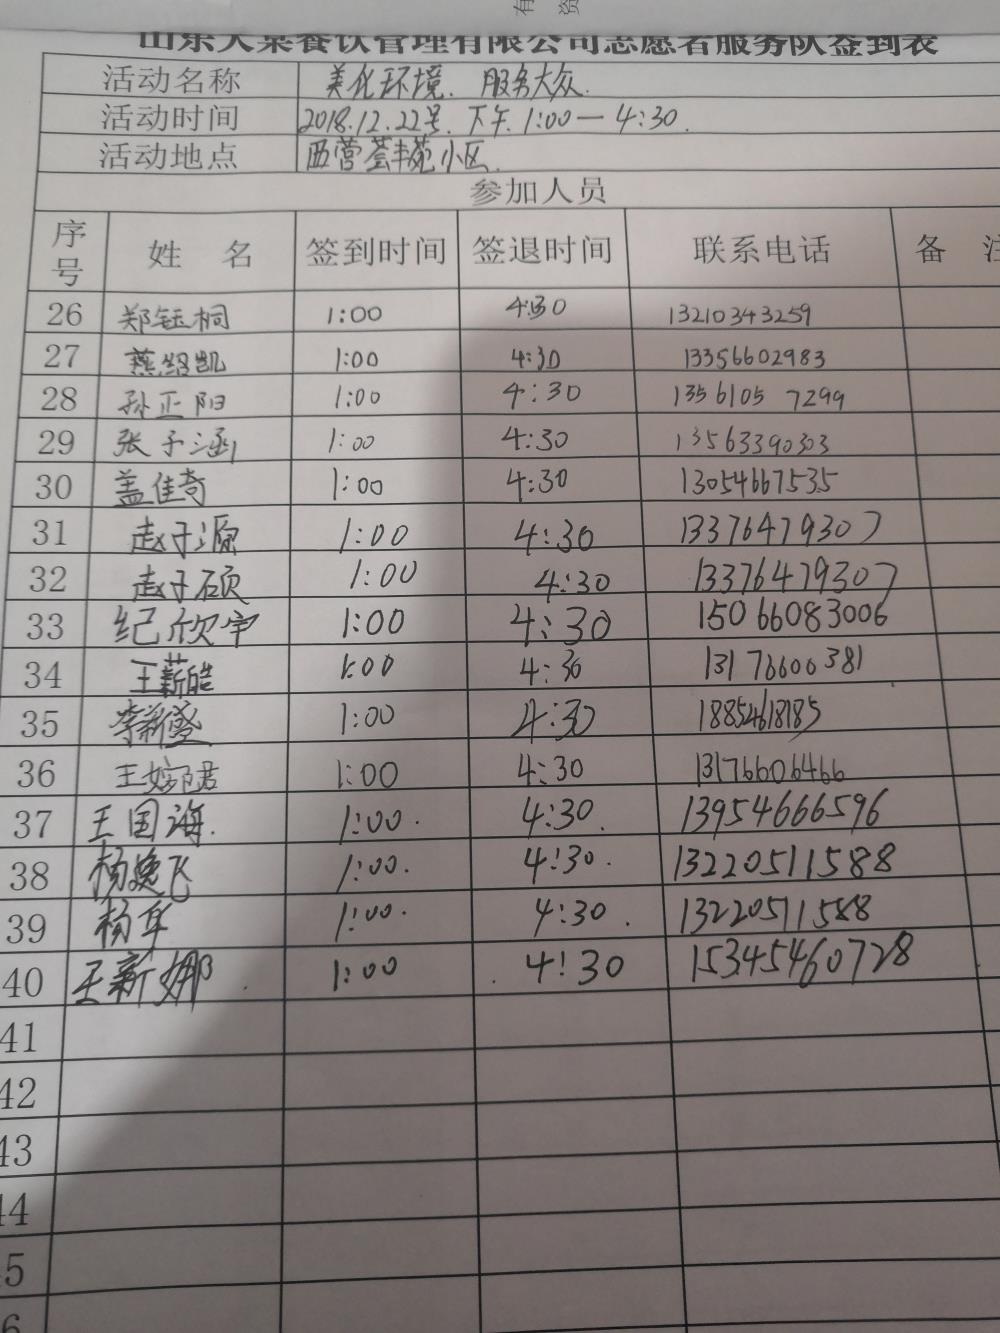 有 资
山东天菜餐饮管理有限公司志愿者服务队签到表
活动名称 美化环境、服务大众.
活动时间 2018.12.22号.下午.1:00—4:30.
活动地点 西营荟丰苑小区.
参加人员
序号 姓 名 签到时间 签退时间 联系电话 备 注
26 郑钰桐 1:00 4:30 13210343259
27 燕绍凯 1:00 4:30 13356602983
28 孙正阳 1:00 4:30 1356105 7299
29 张子涵 1:00 4:30 13563390303
30 盖佳奇 1:00 4:30 13054667535
31 赵子源 1:00 4:30 13376479307
32 赵子硕 1:00 4:30 13376479307
33 纪欣宇 1:00 4:30 15066083006
34 王薪皓 1:00 4:30 13176600381
35 李新 1:00 4:30 18854618185
36 王 君 1:00 4:30 13176606466
37 王国海. 1:00. 4:30. 13954666596
38 杨逸飞 1:00. 4:30. 13220511588
39 杨军 1:00. 4:30. 13220511588
40 王新娜. 1:00 4:30 15345460728
41
42
43
44
45